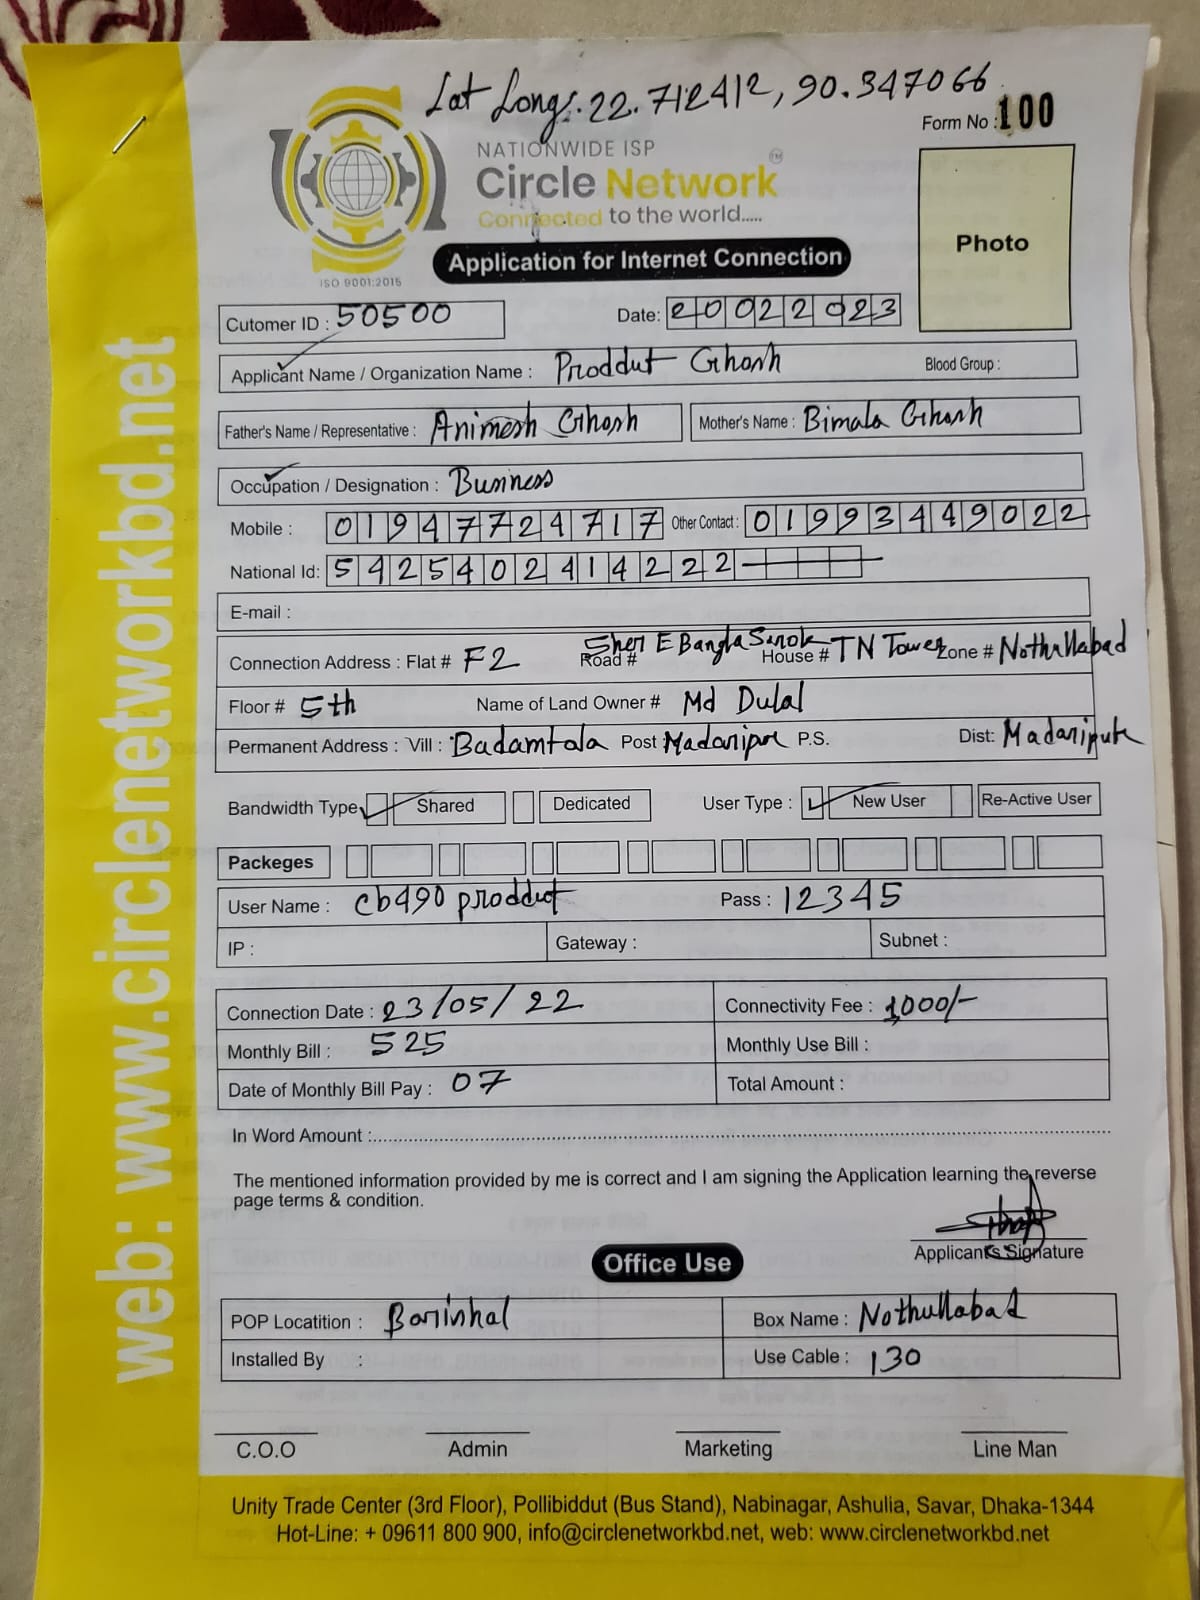 Lat Long:. 22.712412, 90.347066
Form No : 100
NATIONWIDE ISP
Circle Network TM
Connected to the world.....
ISO 9001:2015
Application for Internet Connection
Photo
Cutomer ID : 50500
Date: 20022023
Applicant Name / Organization Name : Proddut Ghosh
Blood Group :
Father's Name / Representative : Animesh Ghosh
Mother's Name : Bimala Ghosh
Occupation / Designation : Business
Mobile : 01947724717 Other Contact : 01993449022
National Id: 5425402414222
E-mail :
Connection Address : Flat # F2 Road # Sher E Bangla Sarok House # TN Tower Zone # Nothullabad
Floor # 5th Name of Land Owner # Md Dulal
Permanent Address : Vill : Badamtala Post Madaripur P.S. Dist: Madaripur
Bandwidth Type Shared Dedicated User Type : New User Re-Active User
Packeges
User Name : cb490proddut Pass : 12345
IP : Gateway : Subnet :
Connection Date : 23/05/22 Connectivity Fee : 1,000/-
Monthly Bill : 525 Monthly Use Bill :
Date of Monthly Bill Pay : 07 Total Amount :
In Word Amount :
The mentioned information provided by me is correct and I am signing the Application learning the reverse
page terms & condition.
Applicant's Signature
Office Use
POP Locatition : Barishal Box Name : Nothullabad
Installed By : Use Cable : 130
C.O.O Admin Marketing Line Man
Unity Trade Center (3rd Floor), Pollibiddut (Bus Stand), Nabinagar, Ashulia, Savar, Dhaka-1344
Hot-Line: + 09611 800 900, info@circlenetworkbd.net, web: www.circlenetworkbd.net
web: www.circlenetworkbd.net